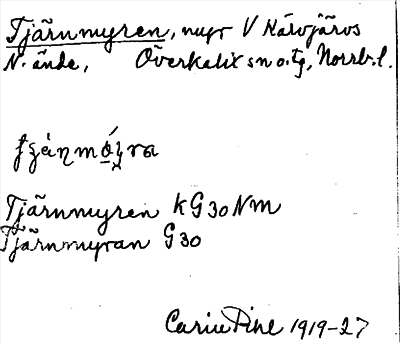 Tjärnmyren, myr V Kärvjärvs
N. ände, Överkalix sn o. tg, Norrb. l.
Tjärnmyren KG30NM
Tjärnmyran G30
Carin Pihl 1919-27